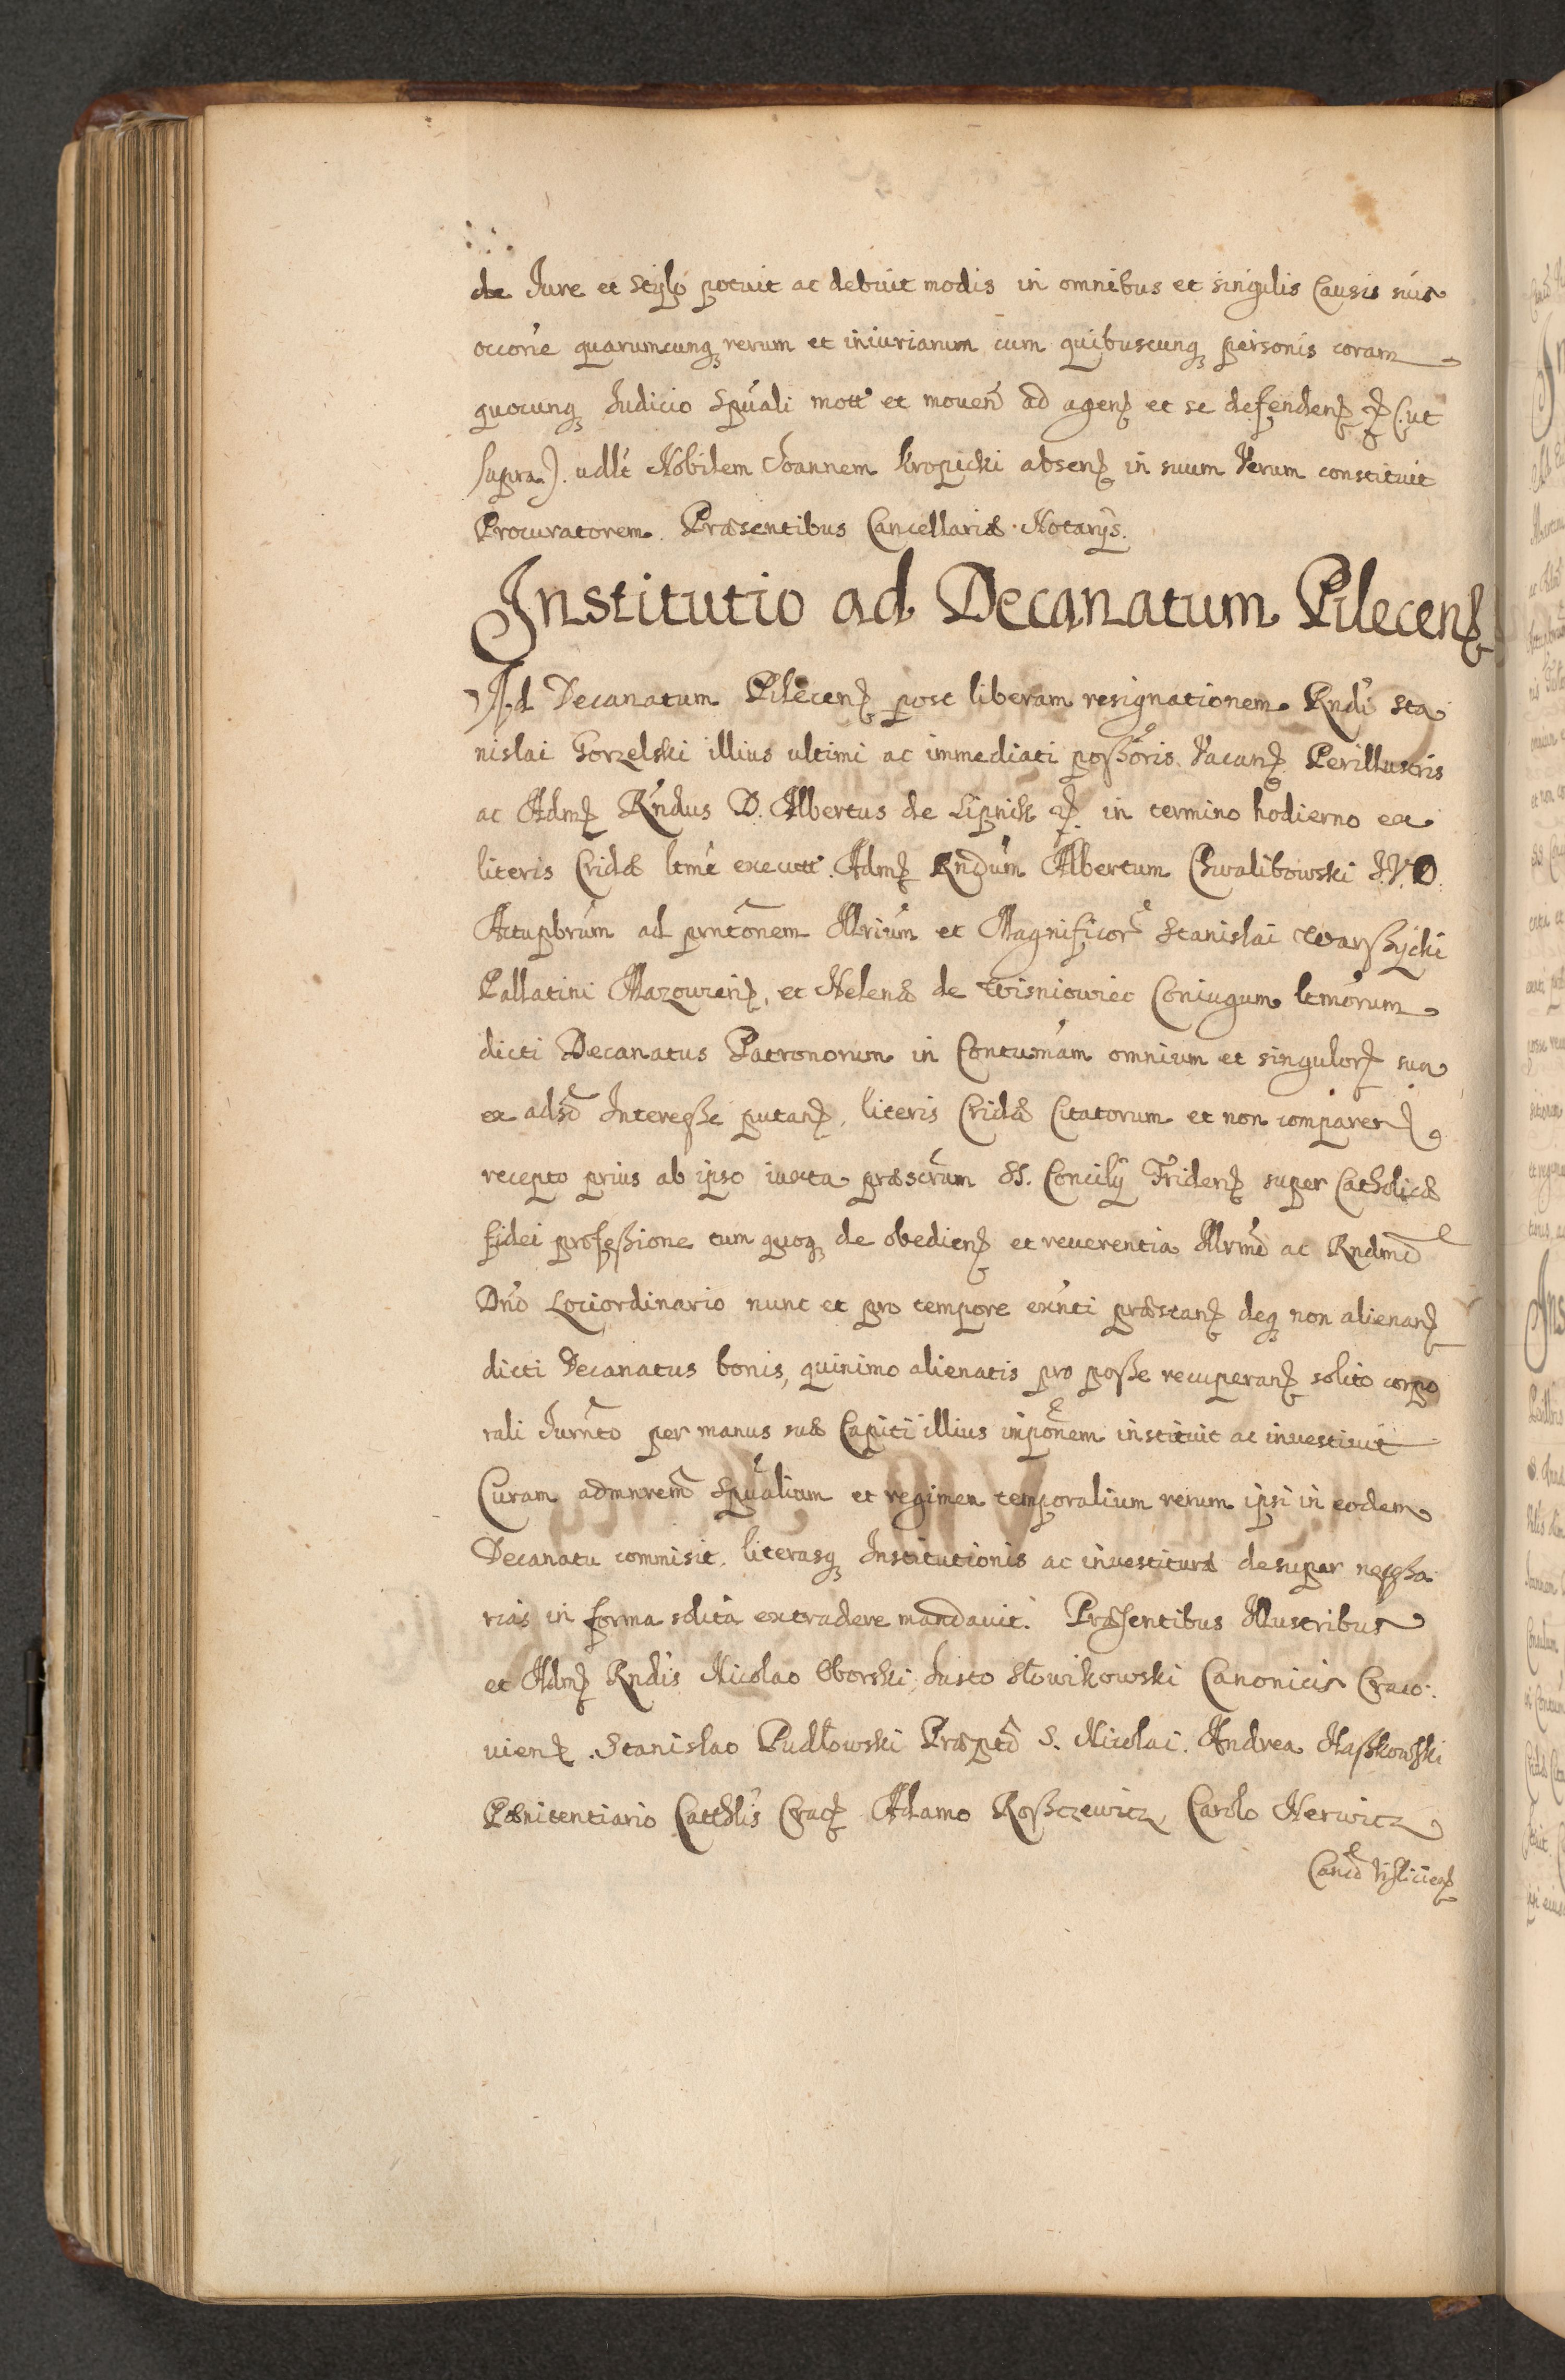 de Jure et Stylo potuit ac debuit modis in omnibus et singulis Causis suis
occõne quarumcunq rerum et iniuriarum cum quibuscunq personis coram
quocunq Judicio Spũali mott et mouen̄ ad agenꝫ et se defendenꝫ ꝛ (ut
supra). vdlt Nobilem Joannem Kropicki absenꝫ in suum Verum constituit
Procuratorem. Præsentibus Cancellariæ Notarijs.
Institutio ad Decanatum Pilecenꝫ
Ad Decanatum Pilecenꝫ post liberam resignationem Rndi Sta
nislai Gorzelski illius ultimi ac immediati poßoris Vacanꝫ Perillustris
ac Admꝫ Rndus D. Albertus de Lipnik ꝛ. in termino hodierno ex
literis Cridæ ltmé executt. Admꝫ Rndum Albertum Chwalibowski J.V.D.
Actupbrum ad prntõnem Illrium et Magnificorꝫ Stanislai Warßycki
Pallatini Mazouienꝫ, et Helenæ de Wisniowiec Coniugum ltmorum
dicti Decanatus Patronorum in Contumãm omnium et singulorꝫ sua
ex adso Intereße putanꝫ, literis Cridæ Citatorum et non comparenꝫ
recepto prius ab ipso iuxta præscrũm SS. Concilij Tridenꝫ super Catholicæ
fidei profeßione tum quoq de obedienꝫ et reuerentia Illrmo ac Rndmo
Dno Lociordinario nunc et pro tempore exñti præstanꝫ deq non alienanꝫ
dicti Decanatus bonis, quinimo alienatis pro poße recuperanꝫ solito corpo
rali Jurnto per manus suæ Capiti illius imponem instituit ac inuestiuit
Curam admnrem Spũalium et regimen temporalium rerum ipsi in eodem
Decanatu commisit. literasq Institutionis ac inuestituræ desuper neceßa
rias in forma solita extradere mandauit. Præsentibus Illustribus
et Admꝫ Rndis Nicolao Oborski, Justo Słowikowski Canonicis Craco
uienꝫ. Stanislao Pudłowski Præpto S. Nicolai. Andrea Kaßkowski
Pœnitentiario Catthlis Cracꝫ Adamo Roßczewicz, Carolo Herwicz
Canco Vislicienꝫ